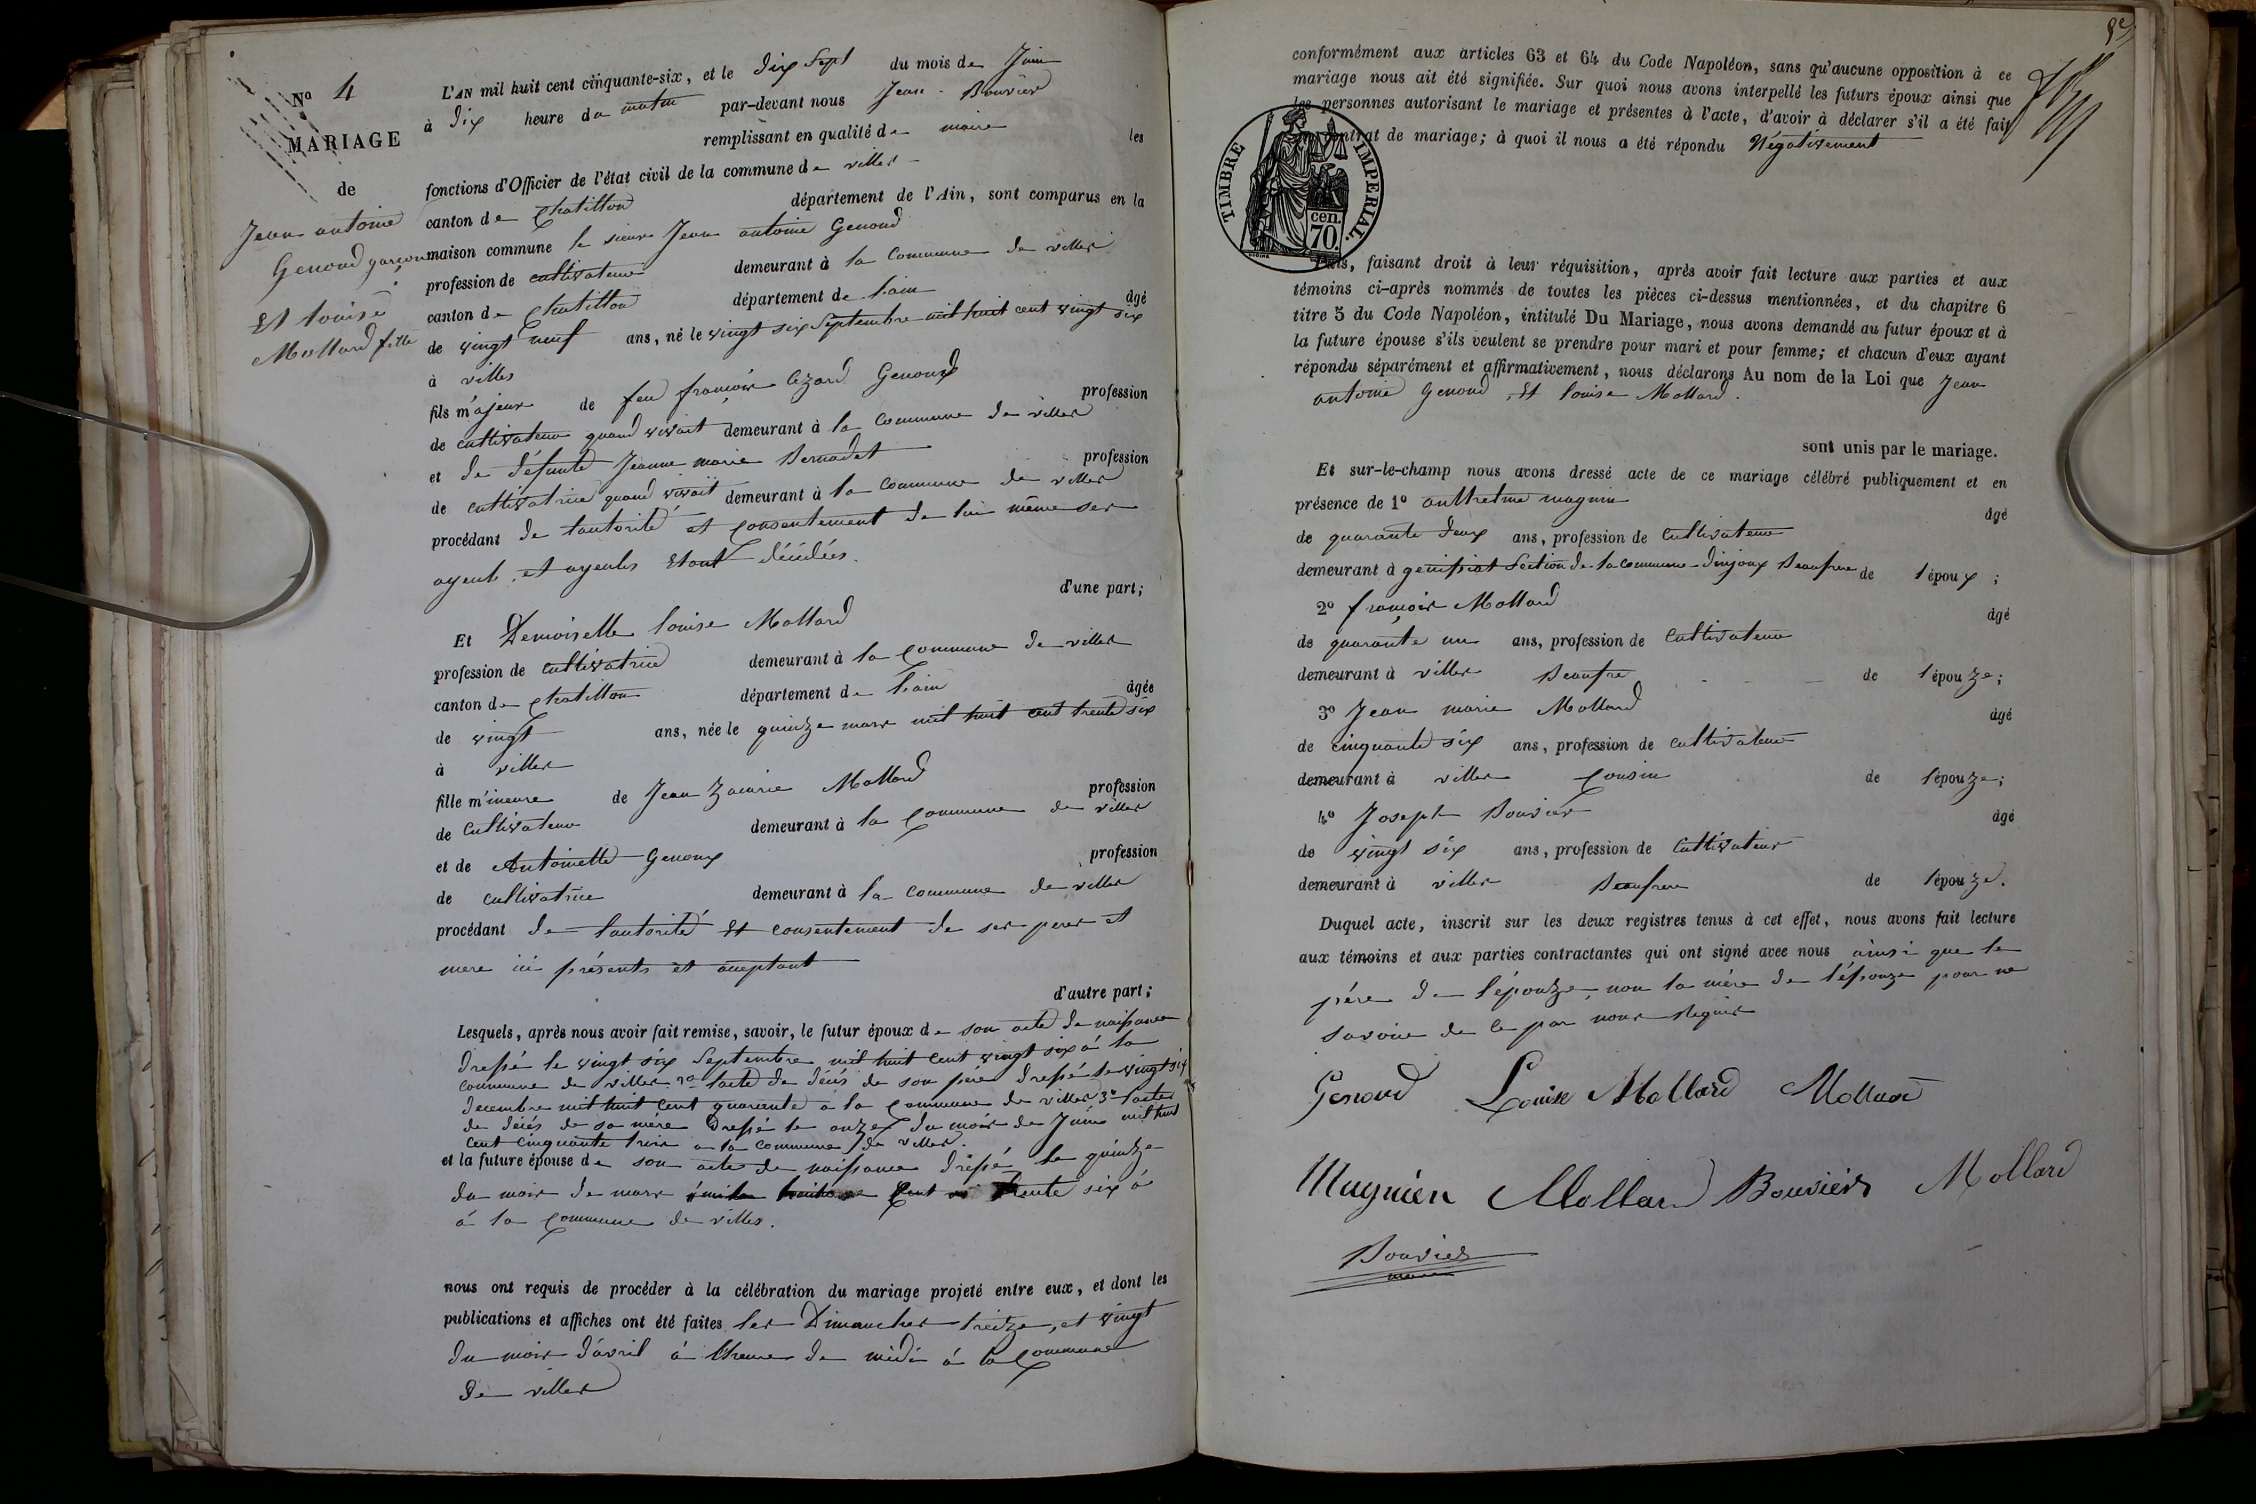 No 4
MARIAGE
de
Jean antoine
Genoud garçon
Et louise
Mollard fille
L'AN mil huit cent cinquante-six, et le dix sept du mois de Juin
à dix heure du matin par-devant nous Jean Bouvier
remplissant en qualité de maire les
fonctions d'Officier de l'état civil de la commune de villes
canton de Chatillon département de l'Ain, sont comparus en la
maison commune le sieur Jean antoine Genoud
profession de cultivateur demeurant à la commune de villes
canton de Chatillon département de l'ain âgé
de vingt neuf ans, né le vingt six Septembre mil huit cent vingt six
à villes
fils majeur de feu françois Genoud profession
de cultivateur quand vivait demeurant à la commune de villes
et de défunte Jeanne marie Bernadet profession
de cultivatrice quand vivait demeurant à la commune de villes
procédant de l'autorité et consentement de lui même ses
ayeuls et ayeules étant décédées.
d'une part;
Et Demoiselle louise Mollard
profession de cultivatrice demeurant à la commune de villes
canton de Chatillon département de l'ain âgée
de vingt ans, née le quinze mars mil huit cent trente six
à villes
fille mineure de Jean Zacarie Mollard profession
de Cultivateur demeurant à la commune de villes
et de Antoinette Genoux profession
de cultivatrice demeurant à la commune de villes
procédant de l'autorité Et consentement de ses peres et
mere ici présents et aceptant
d'autre part;
Lesquels, après nous avoir fait remise, savoir, le futur époux de son acte de naissance
dressé le vingt six Septembre mil huit cent vingt six à la
commune de villes 2o l'acte de décés de son père dressé le vingt six
decembre mil huit cent quarente a la commune de villes 3o l'acte
de décés de sa mère dressé le onze du mois de Juin mil huit
cent cinquante trois a la commune de villes.
et la future épouse de son acte de naissance dressé le quinze
du mois de mars cent trente six à
à la commune de villes.
nous ont requis de procéder à la célébration du mariage projeté entre eux, et dont les
publications et affiches ont été faites les Dimanches treitze, et vingt
du mois d'avril à l'heure de midi à la Commune
de villes
conformément aux articles 63 et 64 du Code Napoléon, sans qu'aucune opposition à ce
mariage nous ait été signifiée. Sur quoi nous avons interpellé les futurs époux ainsi que
les personnes autorisant le mariage et présentes à l'acte, d'avoir à déclarer s'il a été fait
contrat de mariage; à quoi il nous a été répondu Négativement
TIMBRE IMPERIAL.
cen.
70.
Puis, faisant droit à leur réquisition, après avoir fait lecture aux parties et aux
témoins ci-après nommés de toutes les pièces ci-dessus mentionnées, et du chapitre 6
titre 5 du Code Napoléon, intitulé Du Mariage, nous avons demandé au futur époux et à
la future épouse s'ils veulent se prendre pour mari et pour femme; et chacun d'eux ayant
répondu séparément et affirmativement, nous déclarons Au nom de la Loi que Jean
antoine Genoud, Et louise Mollard.
sont unis par le mariage.
Et sur-le-champ nous avons dressé acte de ce mariage célébré publiquement et en
présence de 1o magnin âgé
de quarante deux ans, profession de Cultivateur
demeurant à genissiat Section de la commune dinjoux Beaufrere de l'époux;
2o françois Mollard âgé
de quarante un ans, profession de Cultivateur
demeurant à villes Beaufre de l'épouze;
3o Jean marie Mollard âgé
de cinquante six ans, profession de cultivateur
demeurant à villes Cousin de l'épouze;
4o Joseph Bouvier âgé
de vingt six ans, profession de Cultivateur
demeurant à villes Beaufrere de l'épouze.
Duquel acte, inscrit sur les deux registres tenus à cet effet, nous avons fait lecture
aux témoins et aux parties contractantes qui ont signé avec nous ainsi que le
père de l'épouze, non la mère de l'épouze pour ne
savoir de ce par nous
Genoud Louise Mollard Mollard
Magnien Mollard Bouvier Mollard
Bouvier
maire